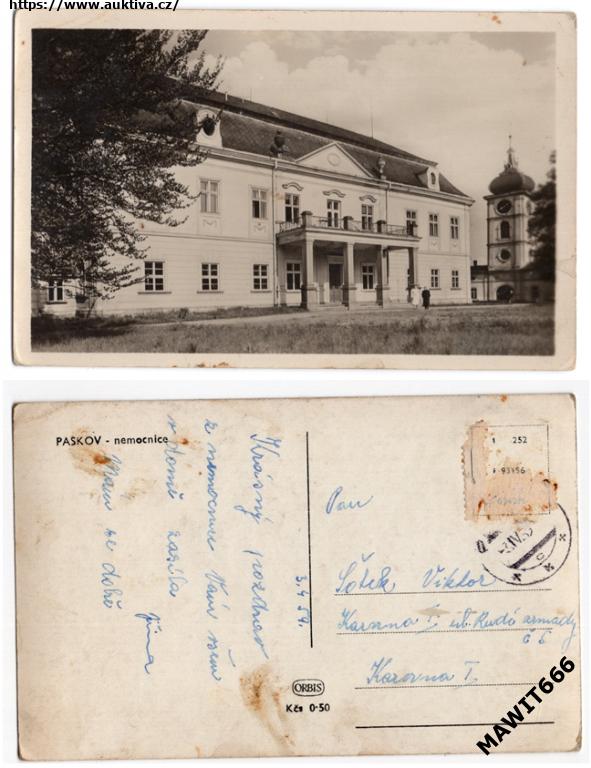 https://www.auktiva.cz/
PASKOV - nemocnice
Krásný pozdrav
z nemocnice Vám všem
v domě zasílá Jiřina
Mám se dobře
3.4.59.
252
93156
Pan
Šotek Viktor
Karvina I ul. Rudé armady
č 6
Karvina I.
ORBIS
Kčs 0·50
MAWIT666